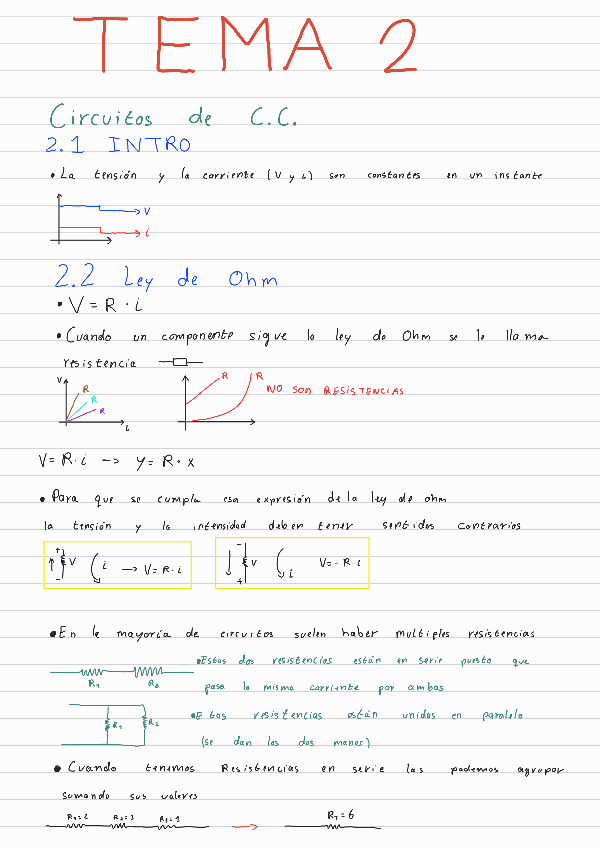 TEMA 2
Circuitos de C.C.
2.1 INTRO
• La tensión y la corriente (V y i) son constantes en un instante
V
i
2.2 Ley de Ohm
• V = R · i
• Cuando un componente sigue la ley de Ohm se le llama
resistencia
V R R R i
R R NO SON RESISTENCIAS
V = R · i → y = R · x
• Para que se cumpla esa expresión de la ley de ohm
la tensión y la intensidad deben tener sentidos contrarios
+ - V i → V = R · i
- + V i V = - R · i
• En la mayoría de circuitos suelen haber multiples resistencias
• Estas dos resistencias están en serie puesto que
R1 R2
pasa la misma corriente por ambas
• Estas resistencias están unidas en paralelo
R1 R2
(se dan las dos manos)
• Cuando tenemos Resistencias en serie las podemos agrupar
sumando sus valores
R1=2 R2=3 R3=1 → RT=6